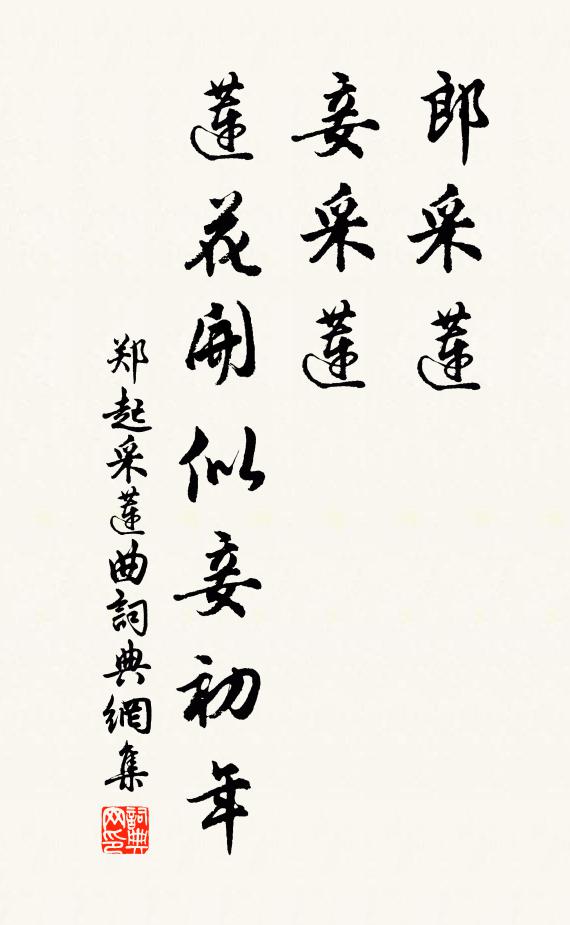 郎采蓮
妾采蓮
蓮花開似妾初年
郑起采蓮曲詞典網集
詞典网印